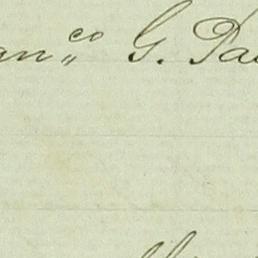 anco G. Pa